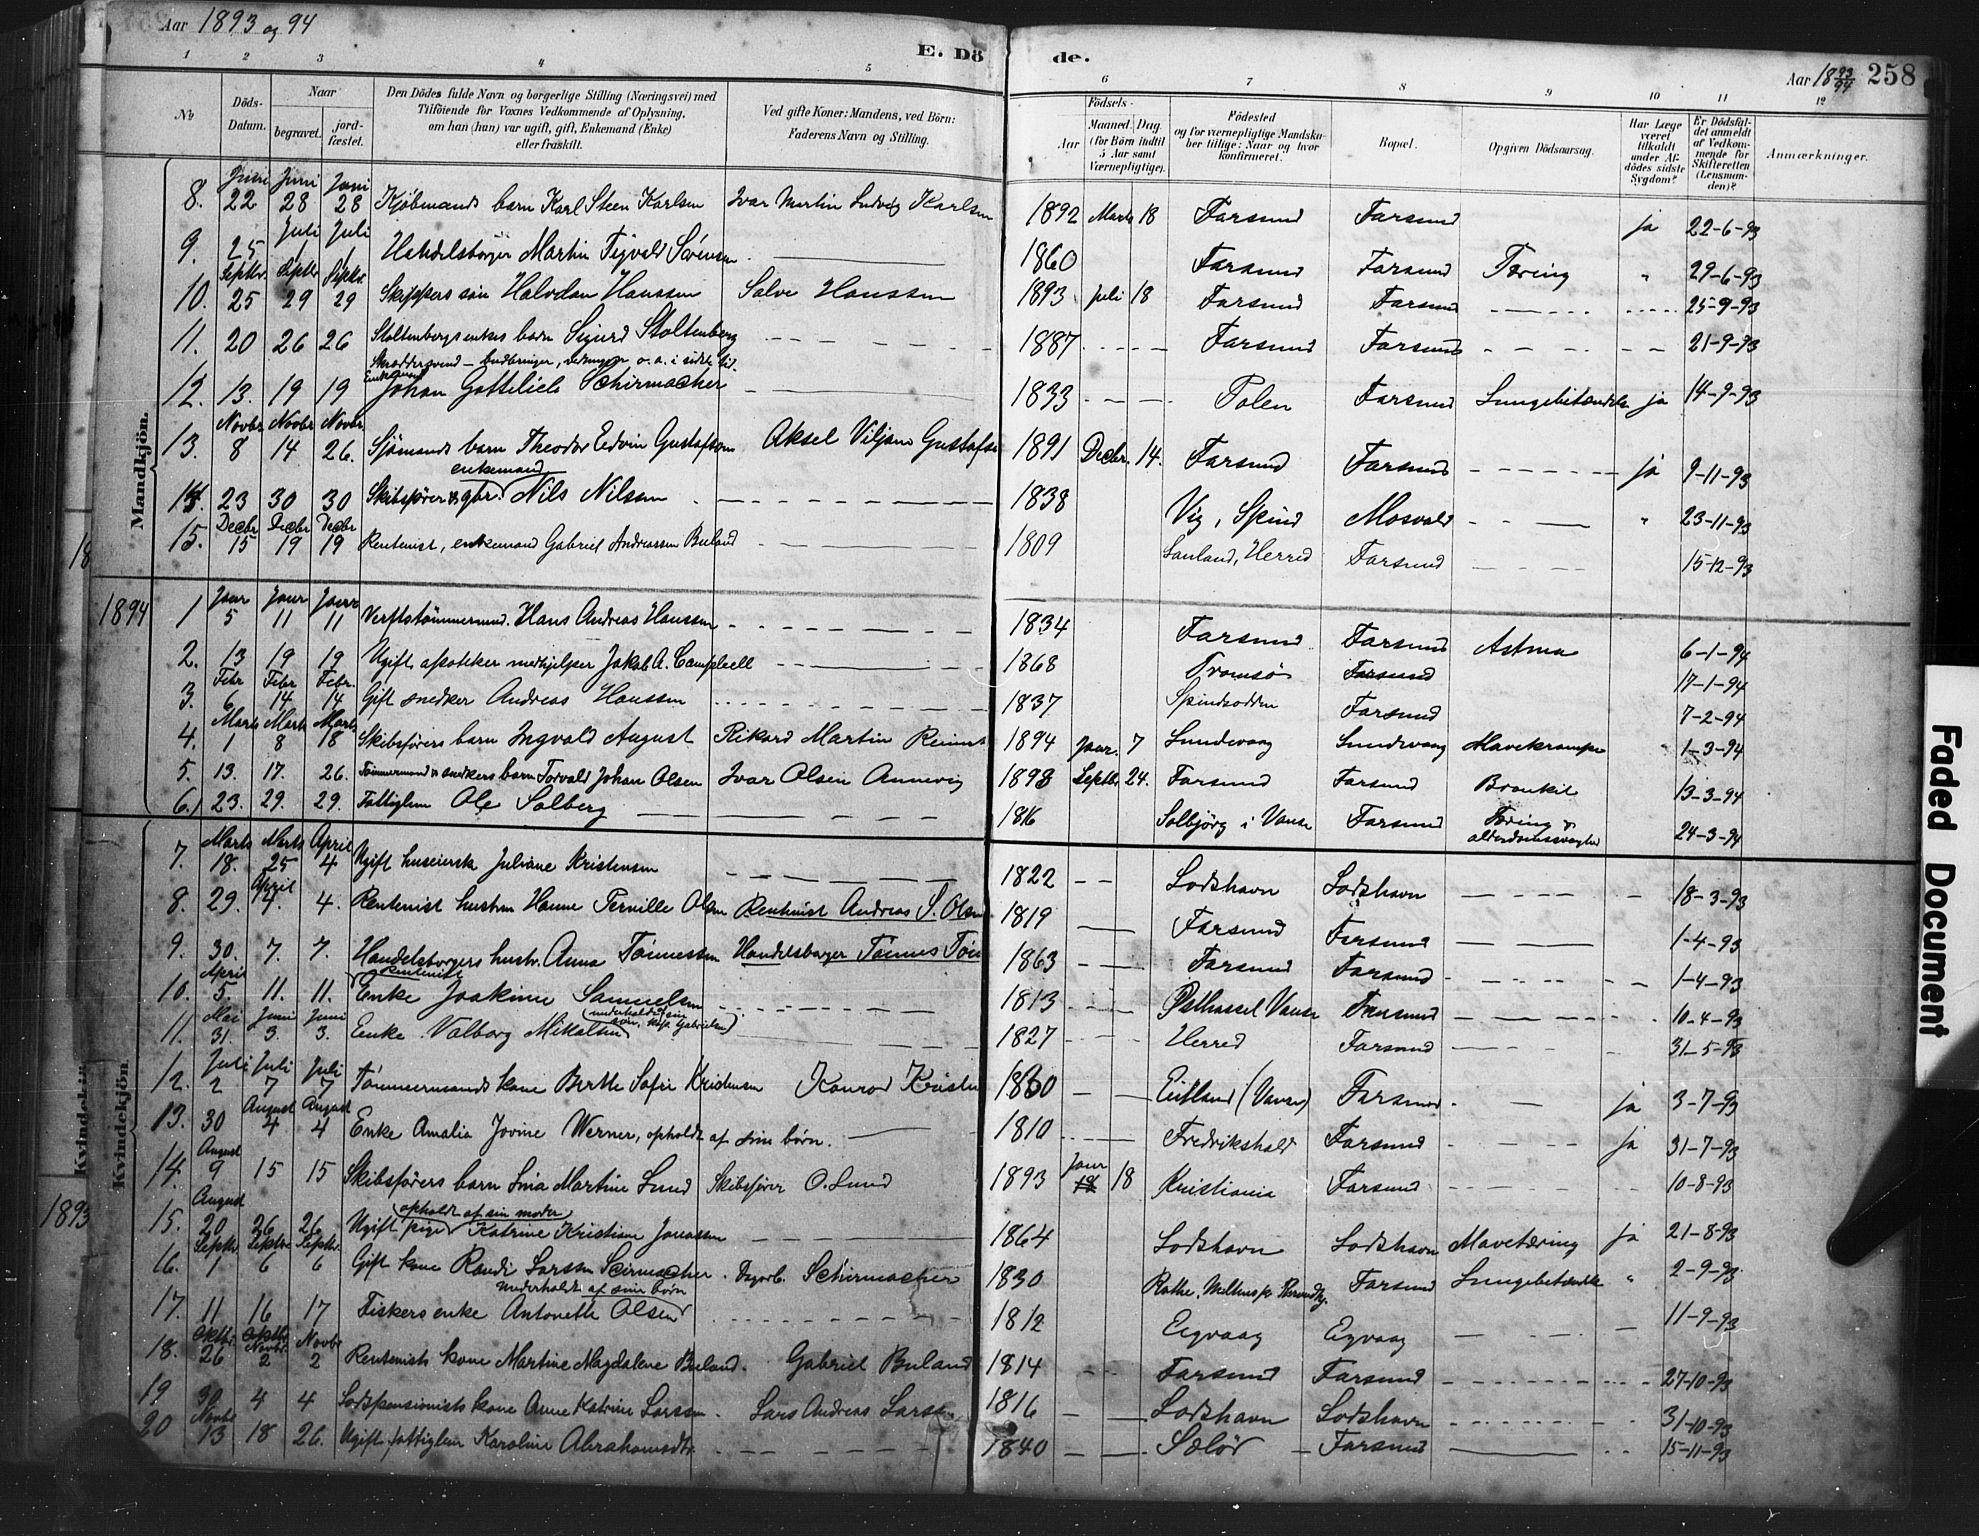 Aar 1893 og 94
E. Dö de.
Aar 18 93/94 258
1 2 3 4 5 6 7 8 9 10 11 12
No Döds-Datum. Naar begravet. jord-fæstet. Den Dödes fulde Navn og borgerlige Stilling (Næringsvei) med Tilföiende for Voxnes Vedkommende af Oplysning, om han (hun) var ugift, gift, Enkemand (Enke) eller fraskilt. Ved gifte Koner: Mandens, ved Börn: Faderens Navn og Stilling. Födsels- Aar Maaned. Dag. (for Börn indtil 5 Aar samt Værnepligtige). Födested og for værnepligtige Mandskaber tillige: Naar og hvor konfirmeret. Bopæl. Opgiven Dödsaarsag. Har Læge været tilkaldt under Afdödes sidste Sygdom? Er Dödsfaldet anmeldt af Vedkommende for Skifteretten (Lensmanden)? Anmærkninger.
Mandkjön.
8. Juni 22 Juni 28 Juni 28 Kjøbmands barn Karl Steen Karlsen Ivar Martin Ludvig Karlsen 1892 Marts 18 Farsund Farsund ja 22-6-93
9. 25 Juli 1 Juli 1 Handelsborger Martin Sigvald Sørensen 1860 Farsund Farsund Tæring " 29-6-93
10. Septbr. 25 Septbr 29 Septbr. 29 Skippers søn Halvdan Hanssen Salve Hanssen 1893 Juli 18 Farsund Farsund 25-9-93
11. 20 26 26 Stoltenbergs enkes barn Sigurd Stoltenberg 1887 Farsund Farsund 21-9-93
Skræddersvend – budbringer, o. a. i sidste tid.
12. 13. 19 19 Enkemand Johan Gottlieb Schirmacher 1833 Polen Farsund Lungebetændelse ja 14-9-93
13. Novbr. 8 Novbr 14 Novbr. 26. Sjømands barn Theodor Edvin Gustafsen Aksel Viljam Gustafse 1891 Decbr. 14. Farsund Farsund ja 9-11-93
14. 23 30 30 Skibsfører & gbr. enkemand Nils Nilssen 1838 Vig, Spind Mosvold " 23-11-93
15. Decbr 15 Decbr 19 Decbr 19 Rentenist, enkemand Gabriel Andreassen Buland 1809 Herred Farsund 15-12-93
1894 1 Januar 5 Januar 11 Januar 11 Verftstømmermand. Hans Andreas Hanssen 1834 Farsund Farsund Astma 6-1-94
2. 13 19 19 Ugift apoteker medhjelper Jakob A. Campbell 1868 Tromsø Farsund 17-1-94
3. Febr 6 Febr 14 Febr. 14 Gift snedker Andreas Hanssen 1837 Spindsodden Farsund 7-2-94
4. Marts 1 Marts 8 Marts 18 Skibsførers barn Ingvald August Rikard Martin Reinert 1894 Januar. 7 Lundevaag Lundevaag Mavekrampe 1-3-94
5. 13. 17. 26. Tømmermand & snedkers barn Torvald Johan Olsen Ivar Olsen Annevig 1893 Septbr 24. Farsund Farsund Bronkit 13-3-94
6. 23. 29. 29. Fattiglem Ole Solberg 1816 Solbjørg i Vanse Farsund Tæring & alderdomssvaghed 24-3-94
Kvindekjön
1893
7. Marts 18. Marts 25 April 4 Ugift huseierske Juliane Kristensen 1822 Lodshavn Lodshavn 18-3-93
8. 29. April 4. 4. Rentenist hustru Hanne Pernille Olsen Rentenist Andreas S. Olsen 1819 Farsund Farsund 1-4-93
9. 30. 7. 7. Handelsborgers hustr. Anna Tønnessen Handelsborger Tønnes Tøn 1863 Farsund Farsund 1-4-93
10. April 5. 11. 11. rentenist Enke Joakime Samuelsen 1813 Østhassel Vanse Farsund 10-4-93
11. Mai 31. Juni 3. Juni 3. Enke Valborg Mikalsen (underholdt af sin søn, Gabrielsen) 1827 Herred Farsund 31-5-93
12. Juli 2 Juli 7 Juli 7 Tømmermands kone Berthe Sofie Kristensen Konrad Kristen 1860 Eitland (Vanse) Farsund ja 3-7-93
13. 30 August 4 August 4 Enke Amalia Jovine Werner, opholdt af sine børn. 1810 Fredrikshald Farsund ja 31-7-93
14. August 9 15 15 Skibsførers barn Lina Martine Lund Skibsfører O. Lund 1893 Januar 18 Kristiania Farsund 10-8-93
15. August 20 26 26 Ugift pige (opholdt af sin moder) Katrine Kristiane Jonassen 1864 Lodshavn Lodshavn Mavetæring ja 21-8-93
16. Septbr. 1 Septbr 6 Septbr. 6 Gift kone Randi Larssen Scirmacher. Dagarb. Schirmacher 1830 Farsund Lungebetændelse " 2-9-93
17. 11 16 17 Fiskers enke Antonette Olsen underholdt af sine børn 1812 Eigvaag Eigvaag 11-9-93
18. Oktbr. 26 Novbr. 2 Novbr 2 Rentenists kone Martine Magdalene Buland. Gabriel Buland 1814 Farsund Farsund 27-10-93
19 30 4 4 Lodspensionists kone Anne Katrine Larssen. Lars Andreas Larss 1816 Lodshavn Lodshavn 31-10-93
20 Novbr 13 18 26. Ugift fattiglem Karoline Abrahamsdtr. 1840 Sælør Farsund 15-11-93
Faded Document